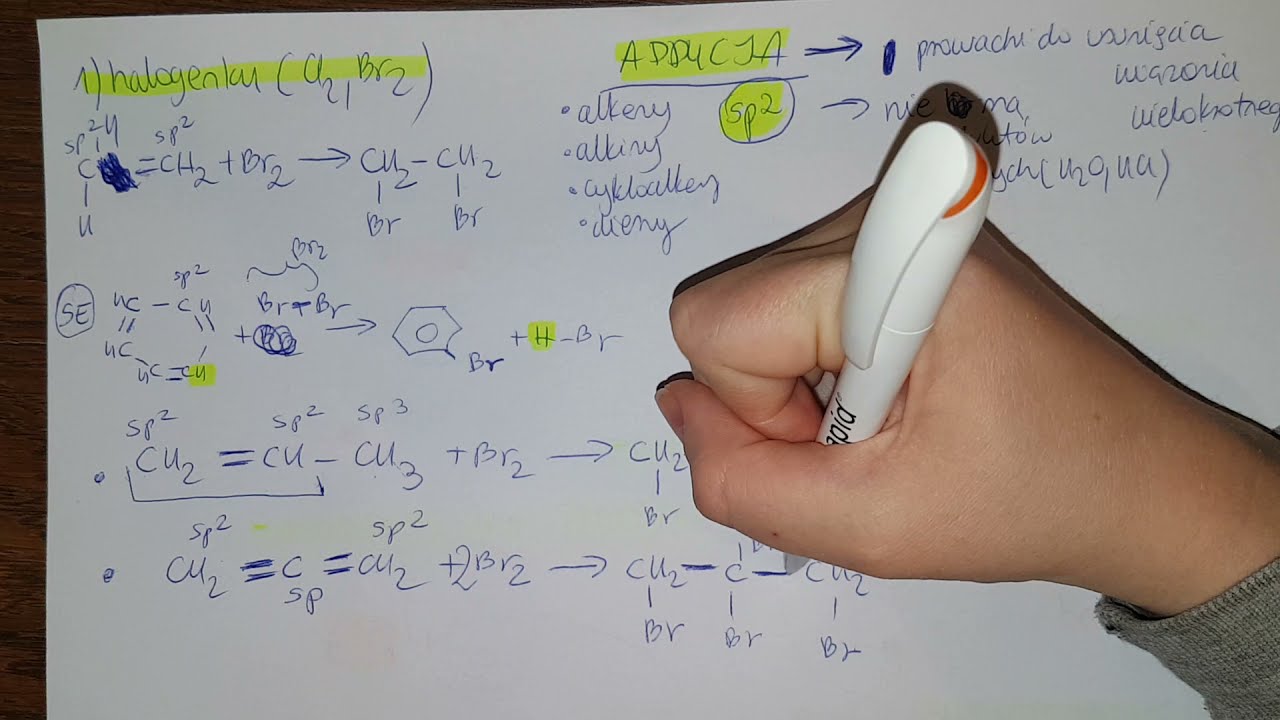 1) halogenku (Cl2, Br2)
ADDYCJA → prowadzi do usunięcia
wiązania
wielokrotnego
• alkeny sp2 → nie ma
• alkiny
• cykloalkeny
• dieny
ych (H2O, HCl)
sp2 H sp2
C =CH2 + Br2 → CH2 – CH2
H Br Br
SE
sp2 Br2
HC – CH Br – Br
HC + → Br + H – Br
HC = CH
sp2 sp2 sp3
• CH2 = CH – CH3 + Br2 → CH2
Br
sp2 sp2
• CH2 = C = CH2 + 2Br2 → CH2 – C – CH2
sp Br Br Br
apid